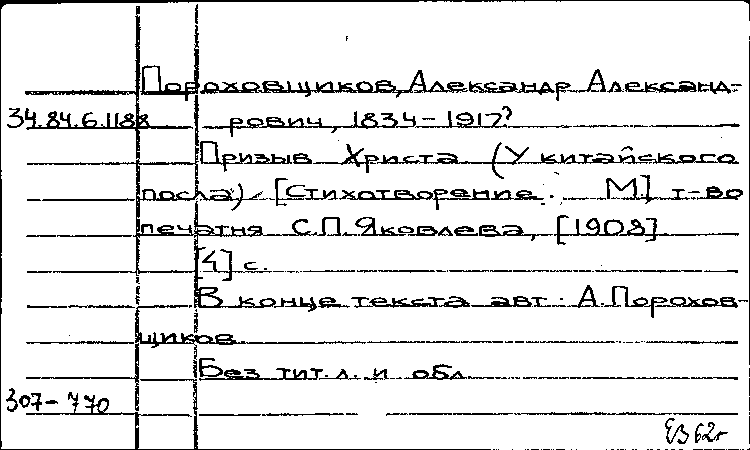 Пороховщиков, Александр Александ-
34.84.6.1188 рович, 1834-1917?
Призыв Христа. (У китайского
посла). [Стихотворение. М.] т-во
печатня С.П. Яковлева, [1903].
[4] с.
В конце текста авт.: А. Порохов-
щиков.
Без тит. л. и обл.
307-770